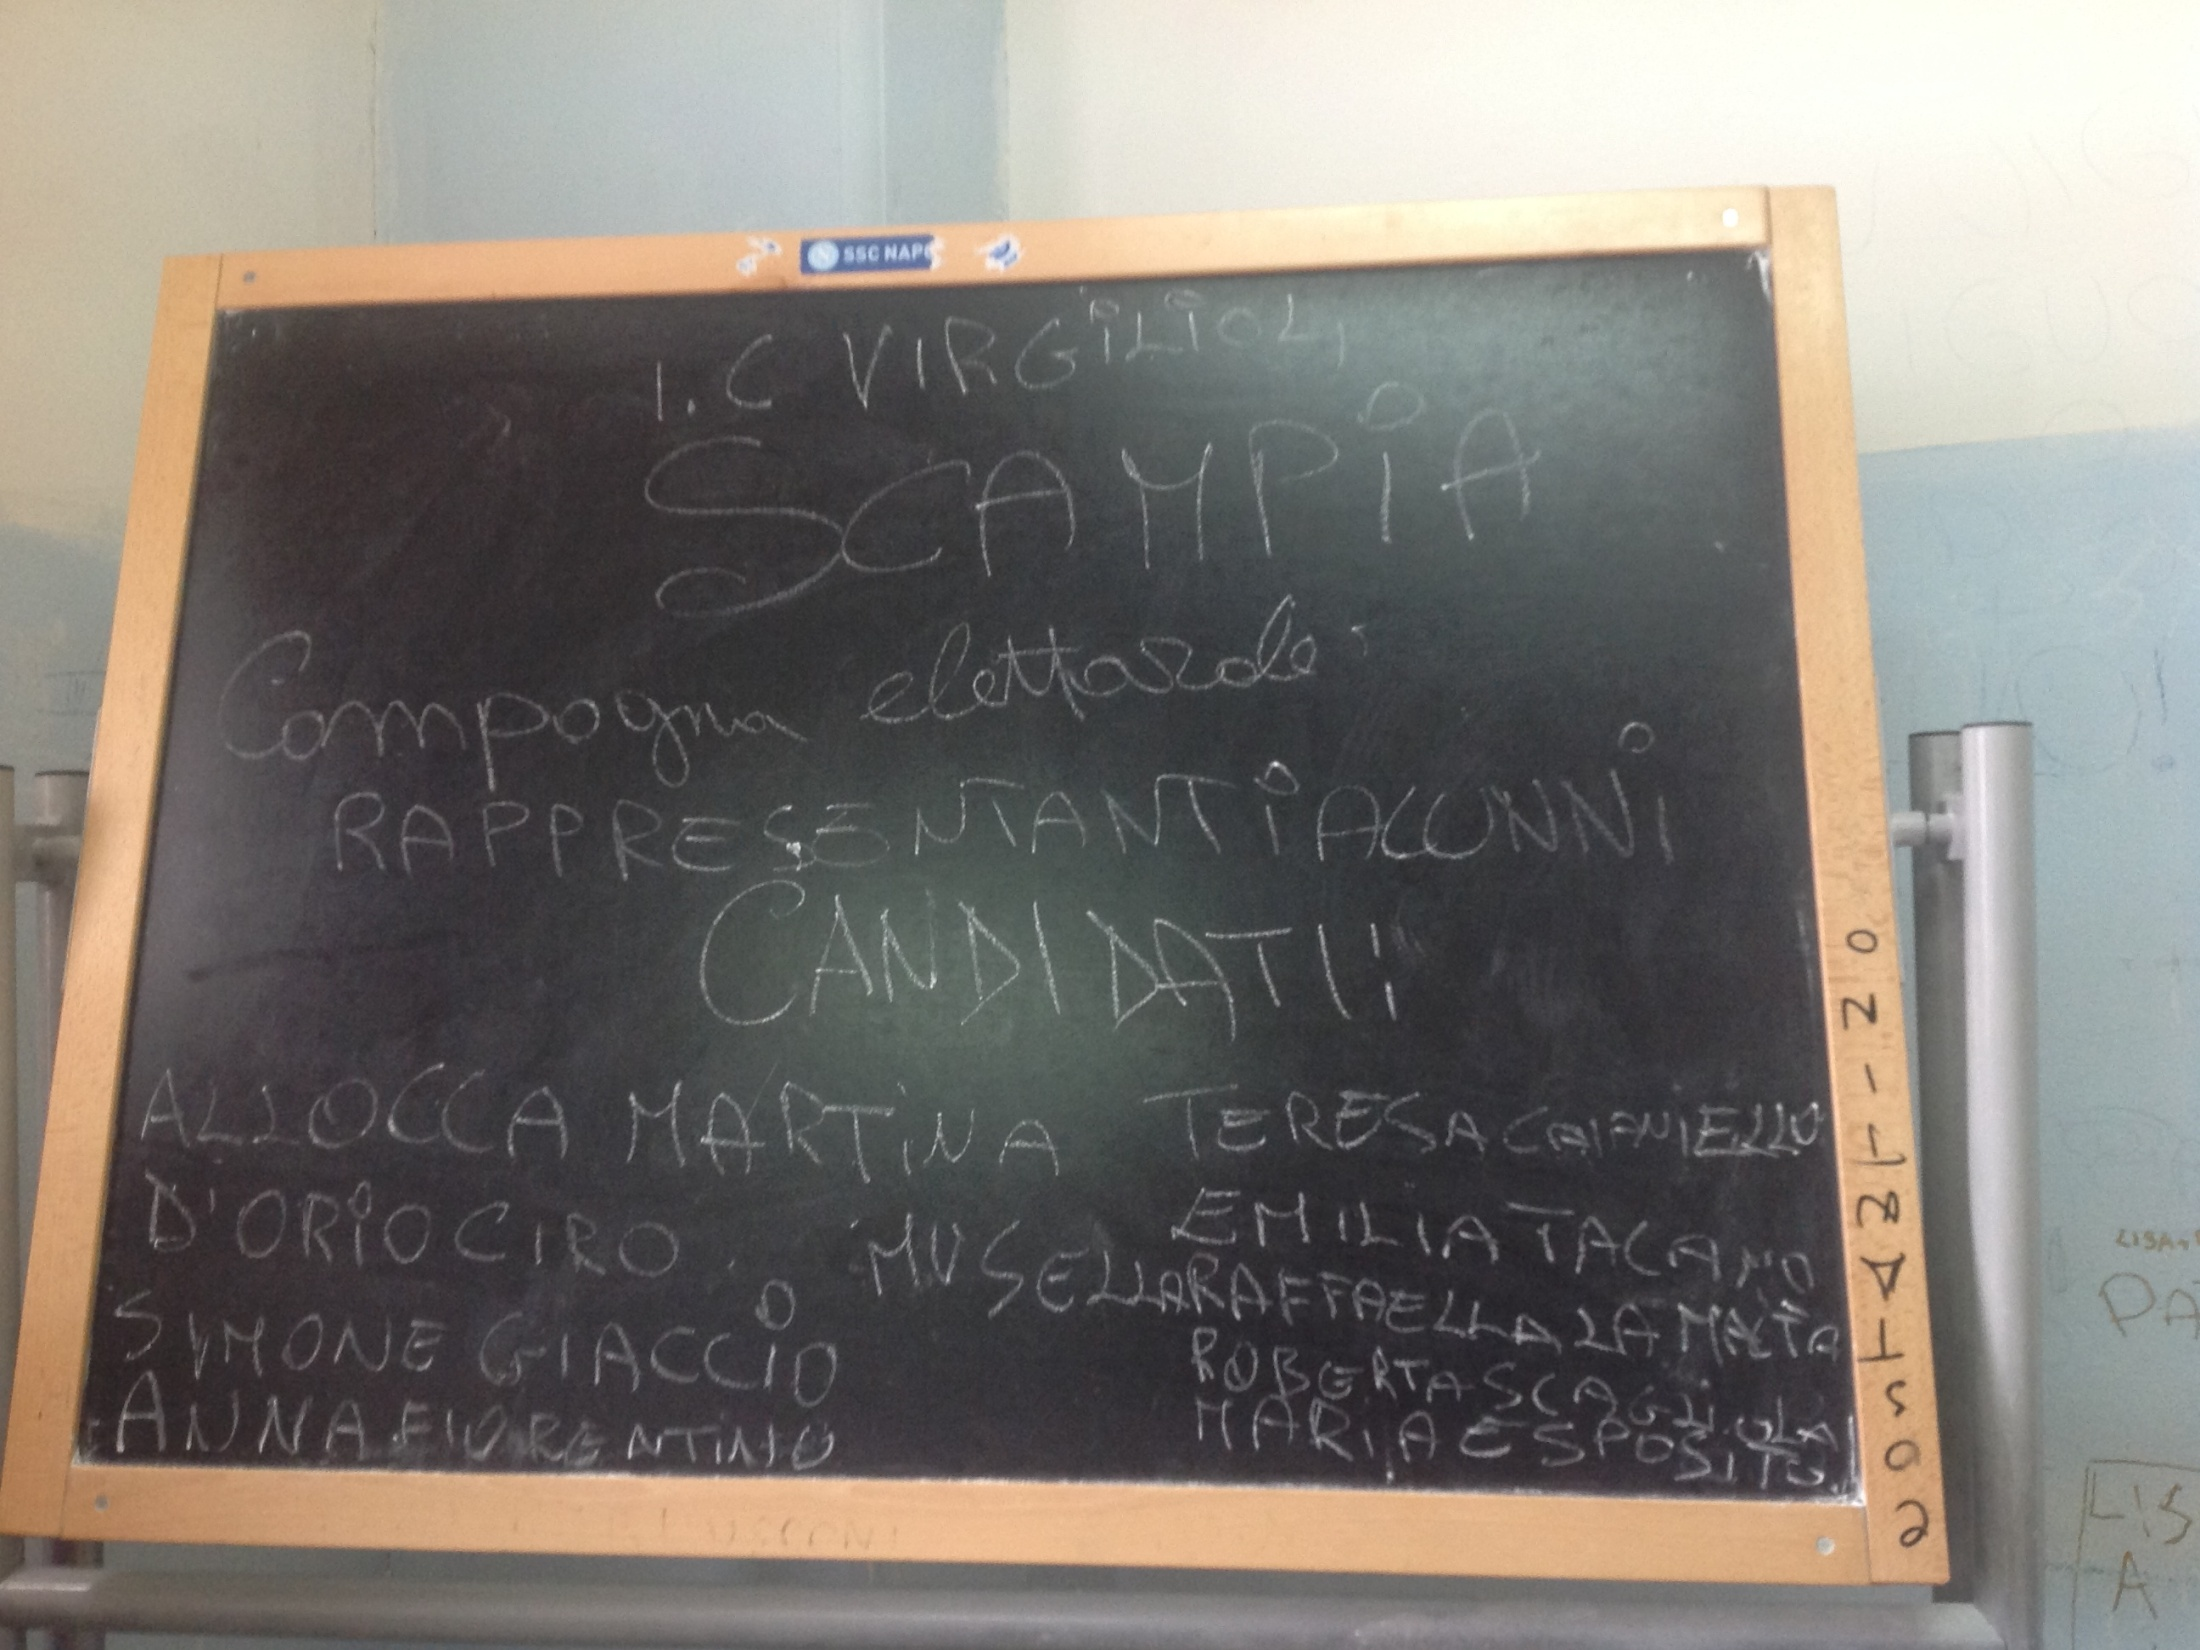 SSC NAP
I.C VIRGILIO L,
SCAMPIA
Compagna elettorale:
RAPPRESENTANTI ALUNNI
CANDIDATI:
ALLOCCA MARTINA
D'ORIO CIRO
MUSELLA
SIMONE GIACCIO
ANNA FIORENTINO
TERESA CAIANIELLO
EMILIA TACANO
RAFFAELLA LA MATTA
ROBERTA SCAGLIOLA
MARIA ESPOSITO
LIS
A